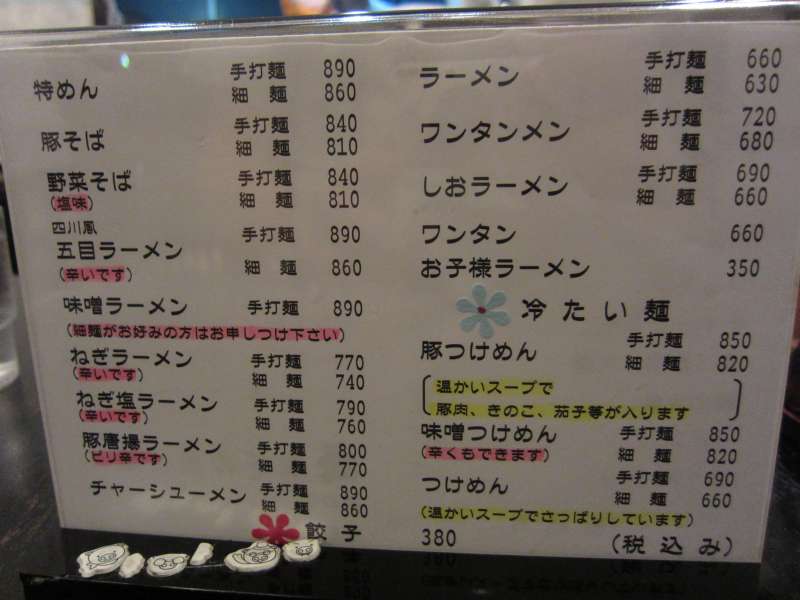 特めん 手打麺 890
細麺 860
豚そば 手打麺 840
細麺 810
野菜そば 手打麺 840
(塩味) 細麺 810
四川風
五目ラーメン 手打麺 890
(辛いです) 細麺 860
味噌ラーメン 手打麺 890
(細麺がお好みの方はお申しつけ下さい)
ねぎラーメン 手打麺 770
(辛いです) 細麺 740
ねぎ塩ラーメン 手打麺 790
(辛いです) 細麺 760
豚唐揚ラーメン 手打麺 800
(ピリ辛です) 細麺 770
チャーシューメン 手打麺 890
細麺 860
餃子 380
ラーメン 手打麺 660
細麺 630
ワンタンメン 手打麺 720
細麺 680
しおラーメン 手打麺 690
細麺 660
ワンタン 660
お子様ラーメン 350
冷たい麺
豚つけめん 手打麺 850
細麺 820
温かいスープで
豚肉、きのこ、茄子等が入ります
味噌つけめん 手打麺 850
(辛くもできます) 細麺 820
つけめん 手打麺 690
細麺 660
(温かいスープでさっぱりしています)
(税込み)